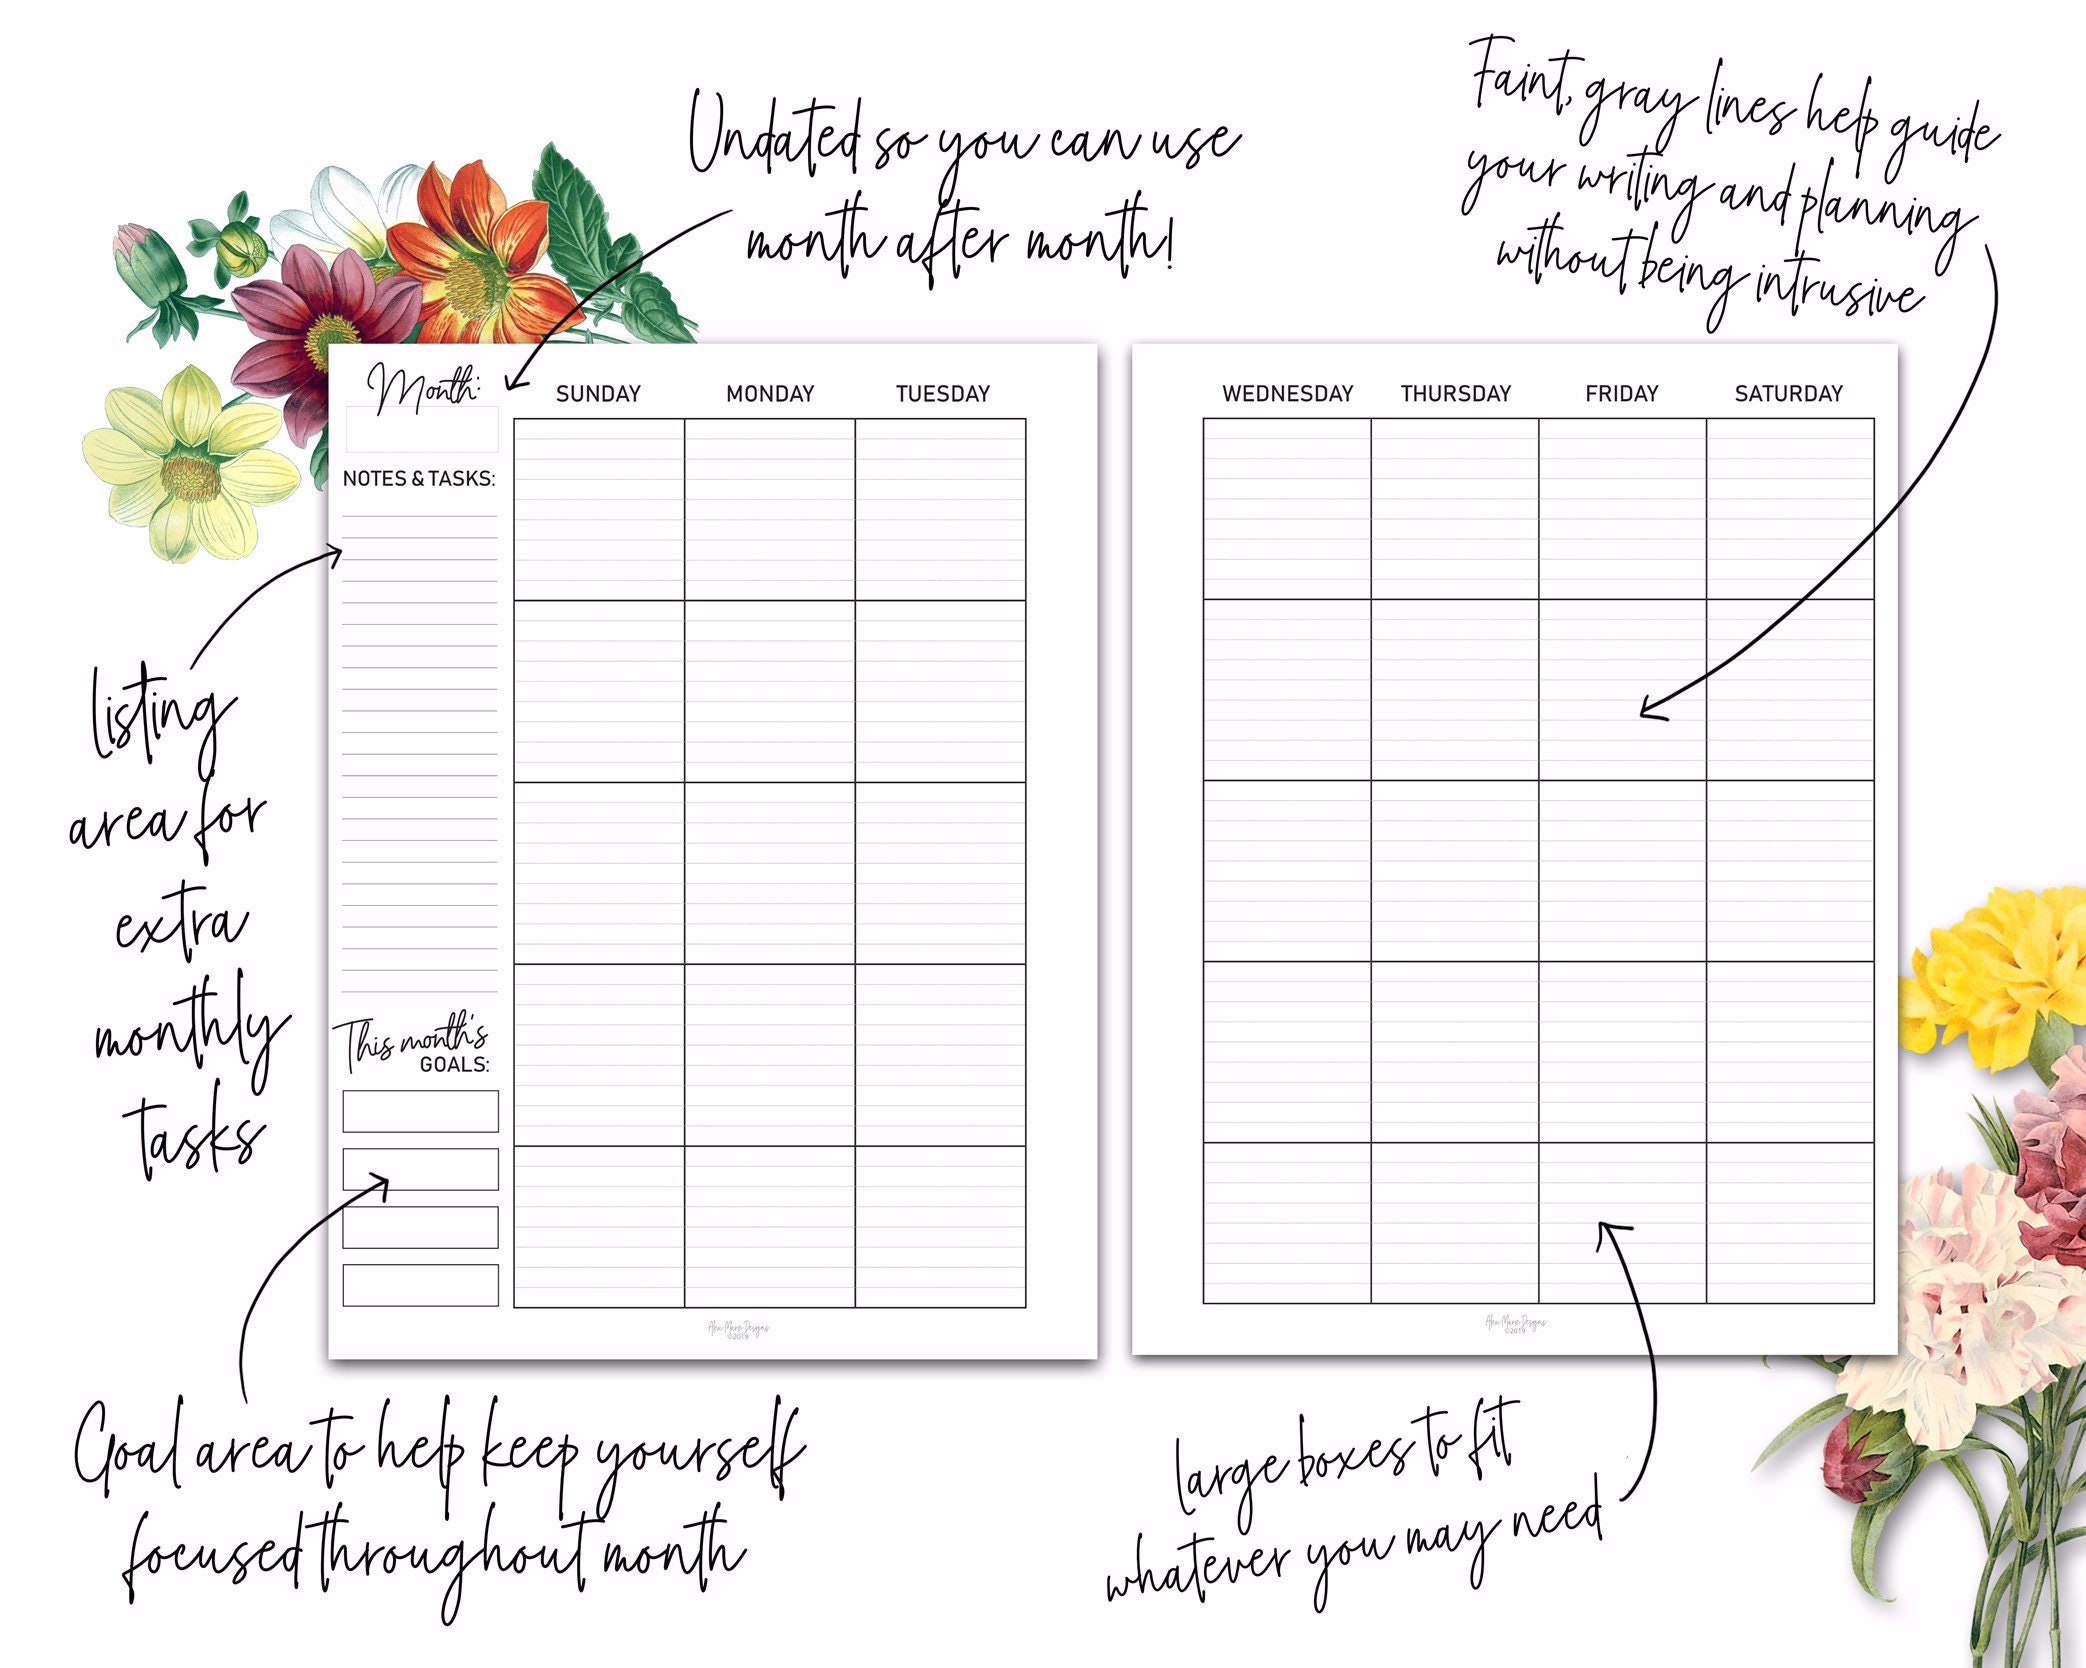 Undated so you can use
month after month!
Faint, gray lines help guide
your writing and planning
without being intrusive
Month:
NOTES & TASKS:
This month's
GOALS:
SUNDAY MONDAY TUESDAY
WEDNESDAY THURSDAY FRIDAY SATURDAY
listing
area for
extra
monthly
tasks
Alex Marie Designs
©2019
Alex Marie Designs
©2019
Goal area to help keep yourself
focused throughout month
large boxes to fit
whatever you may need